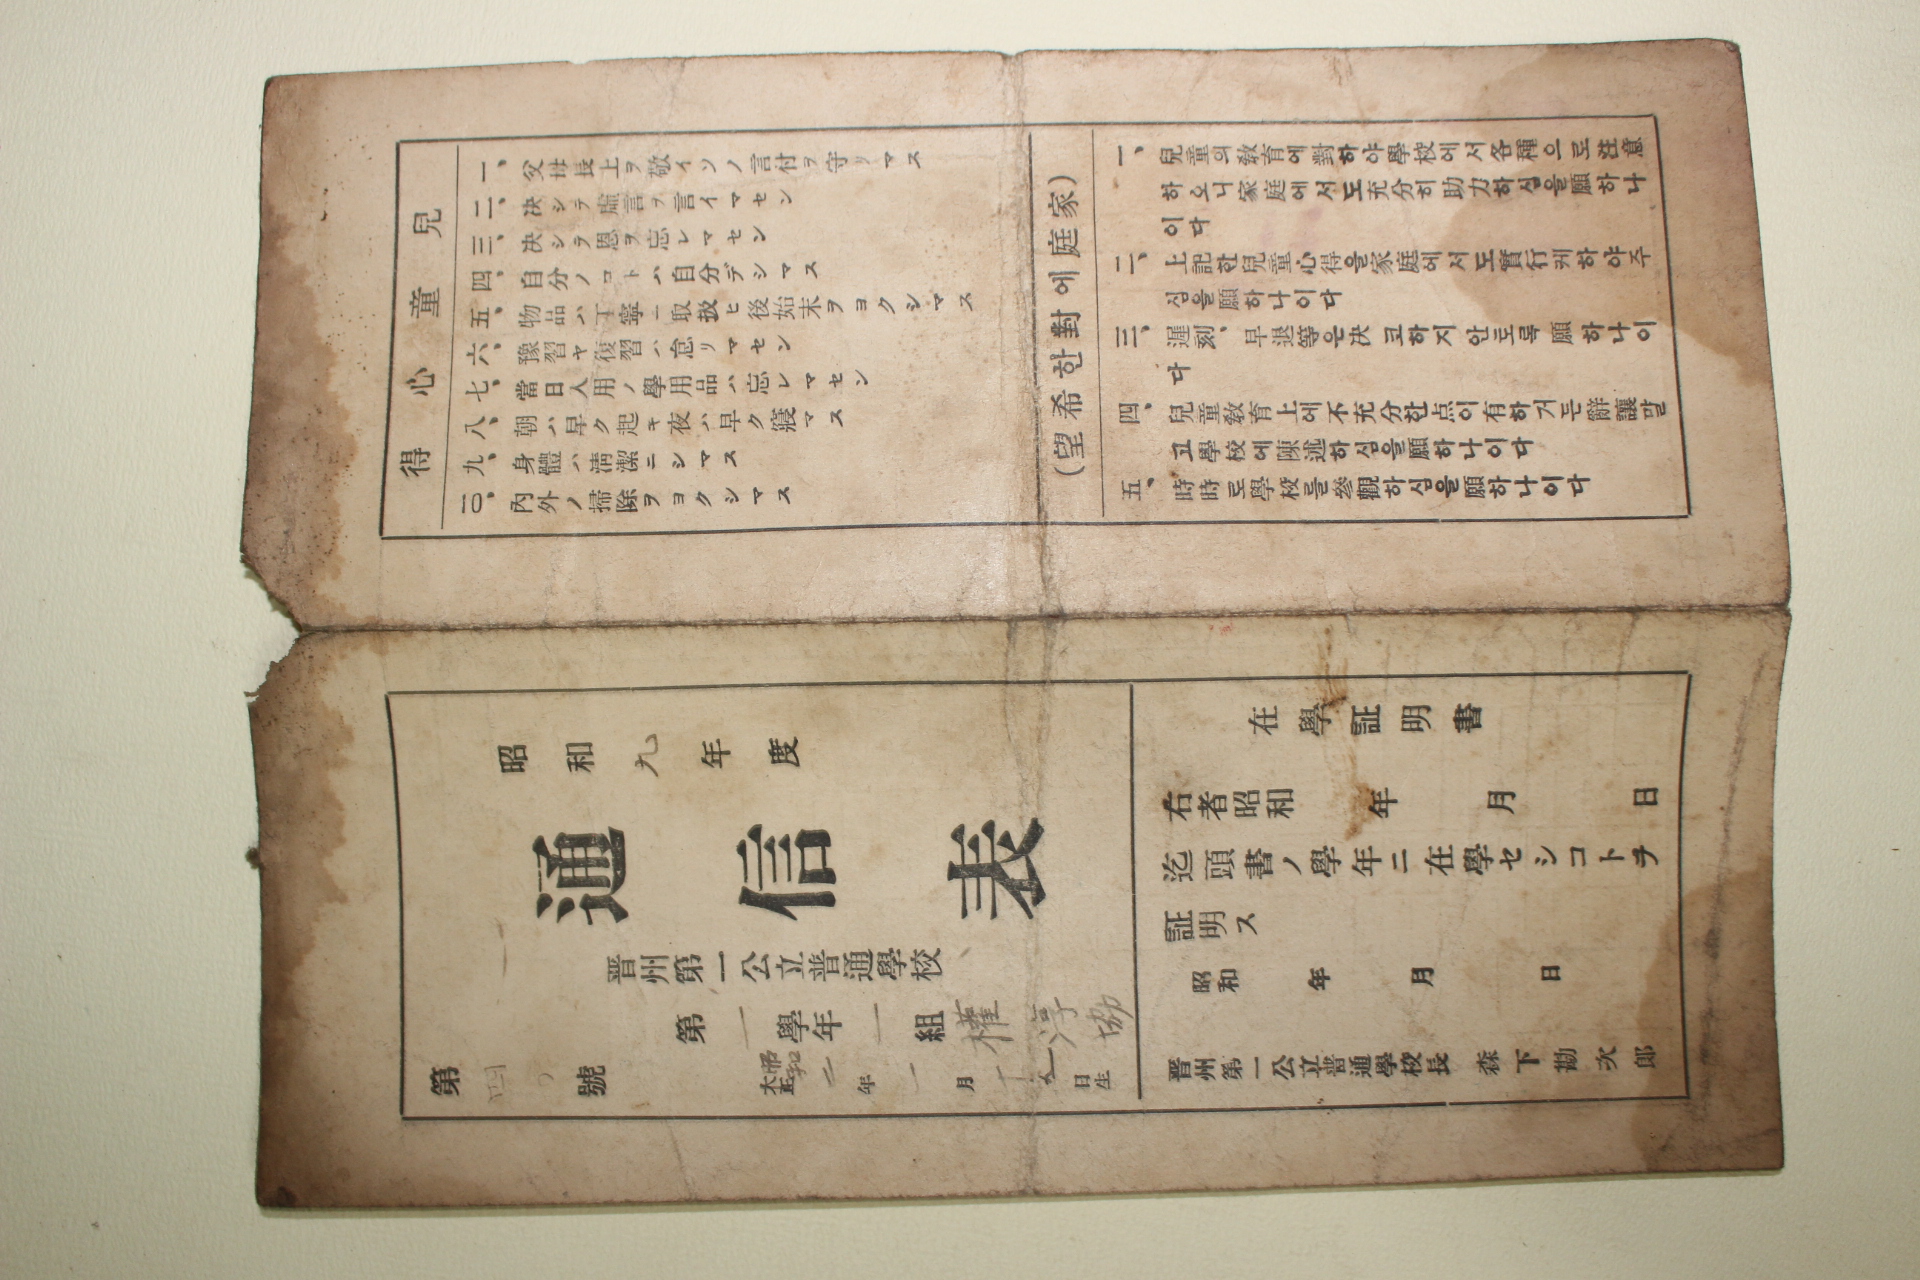 兒童心得
一、父母長上ヲ敬イソノ言付ヲ守リマス
二、決シテ虛言ヲ言イマセン
三、決シテ恩ヲ忘レマセン
四、自分ノコトハ自分デシマス
五、物品ハ丁寧ニ取扱ヒ後始末ヲヨクシマス
六、豫習ヤ復習ハ怠リマセン
七、當日入用ノ學用品ハ忘レマセン
八、朝ハ早ク起キ夜ハ早ク寢マス
九、身體ハ淸潔ニシマス
一〇、內外ノ掃除ヲヨクシマス
(家庭에對한希望)
一、兒童의敎育에對하야學校에서各種으로注意
하오니家庭에서도充分히助力하심을願하나
이다
二、上記한兒童心得을家庭에서도實行케하야주
심을願하나이다
三、遲刻、早退等은決코하지안토록願하나이
다
四、兒童敎育上에不充分한点이有하거든辭讓말
고學校에陳述하심을願하나이다
五、時時로學校를參觀하심을願하나이다
昭和九年度
通信表
晋州第一公立普通學校
第一學年一組 權淳協
大正 昭和 二年一月 日生
第四〇號
在學証明書
右者昭和 年 月 日
迄頭書ノ學年ニ在學セシコトヲ
証明ス
昭和 年 月 日
晋州第一公立普通學校長 森下勘次郎